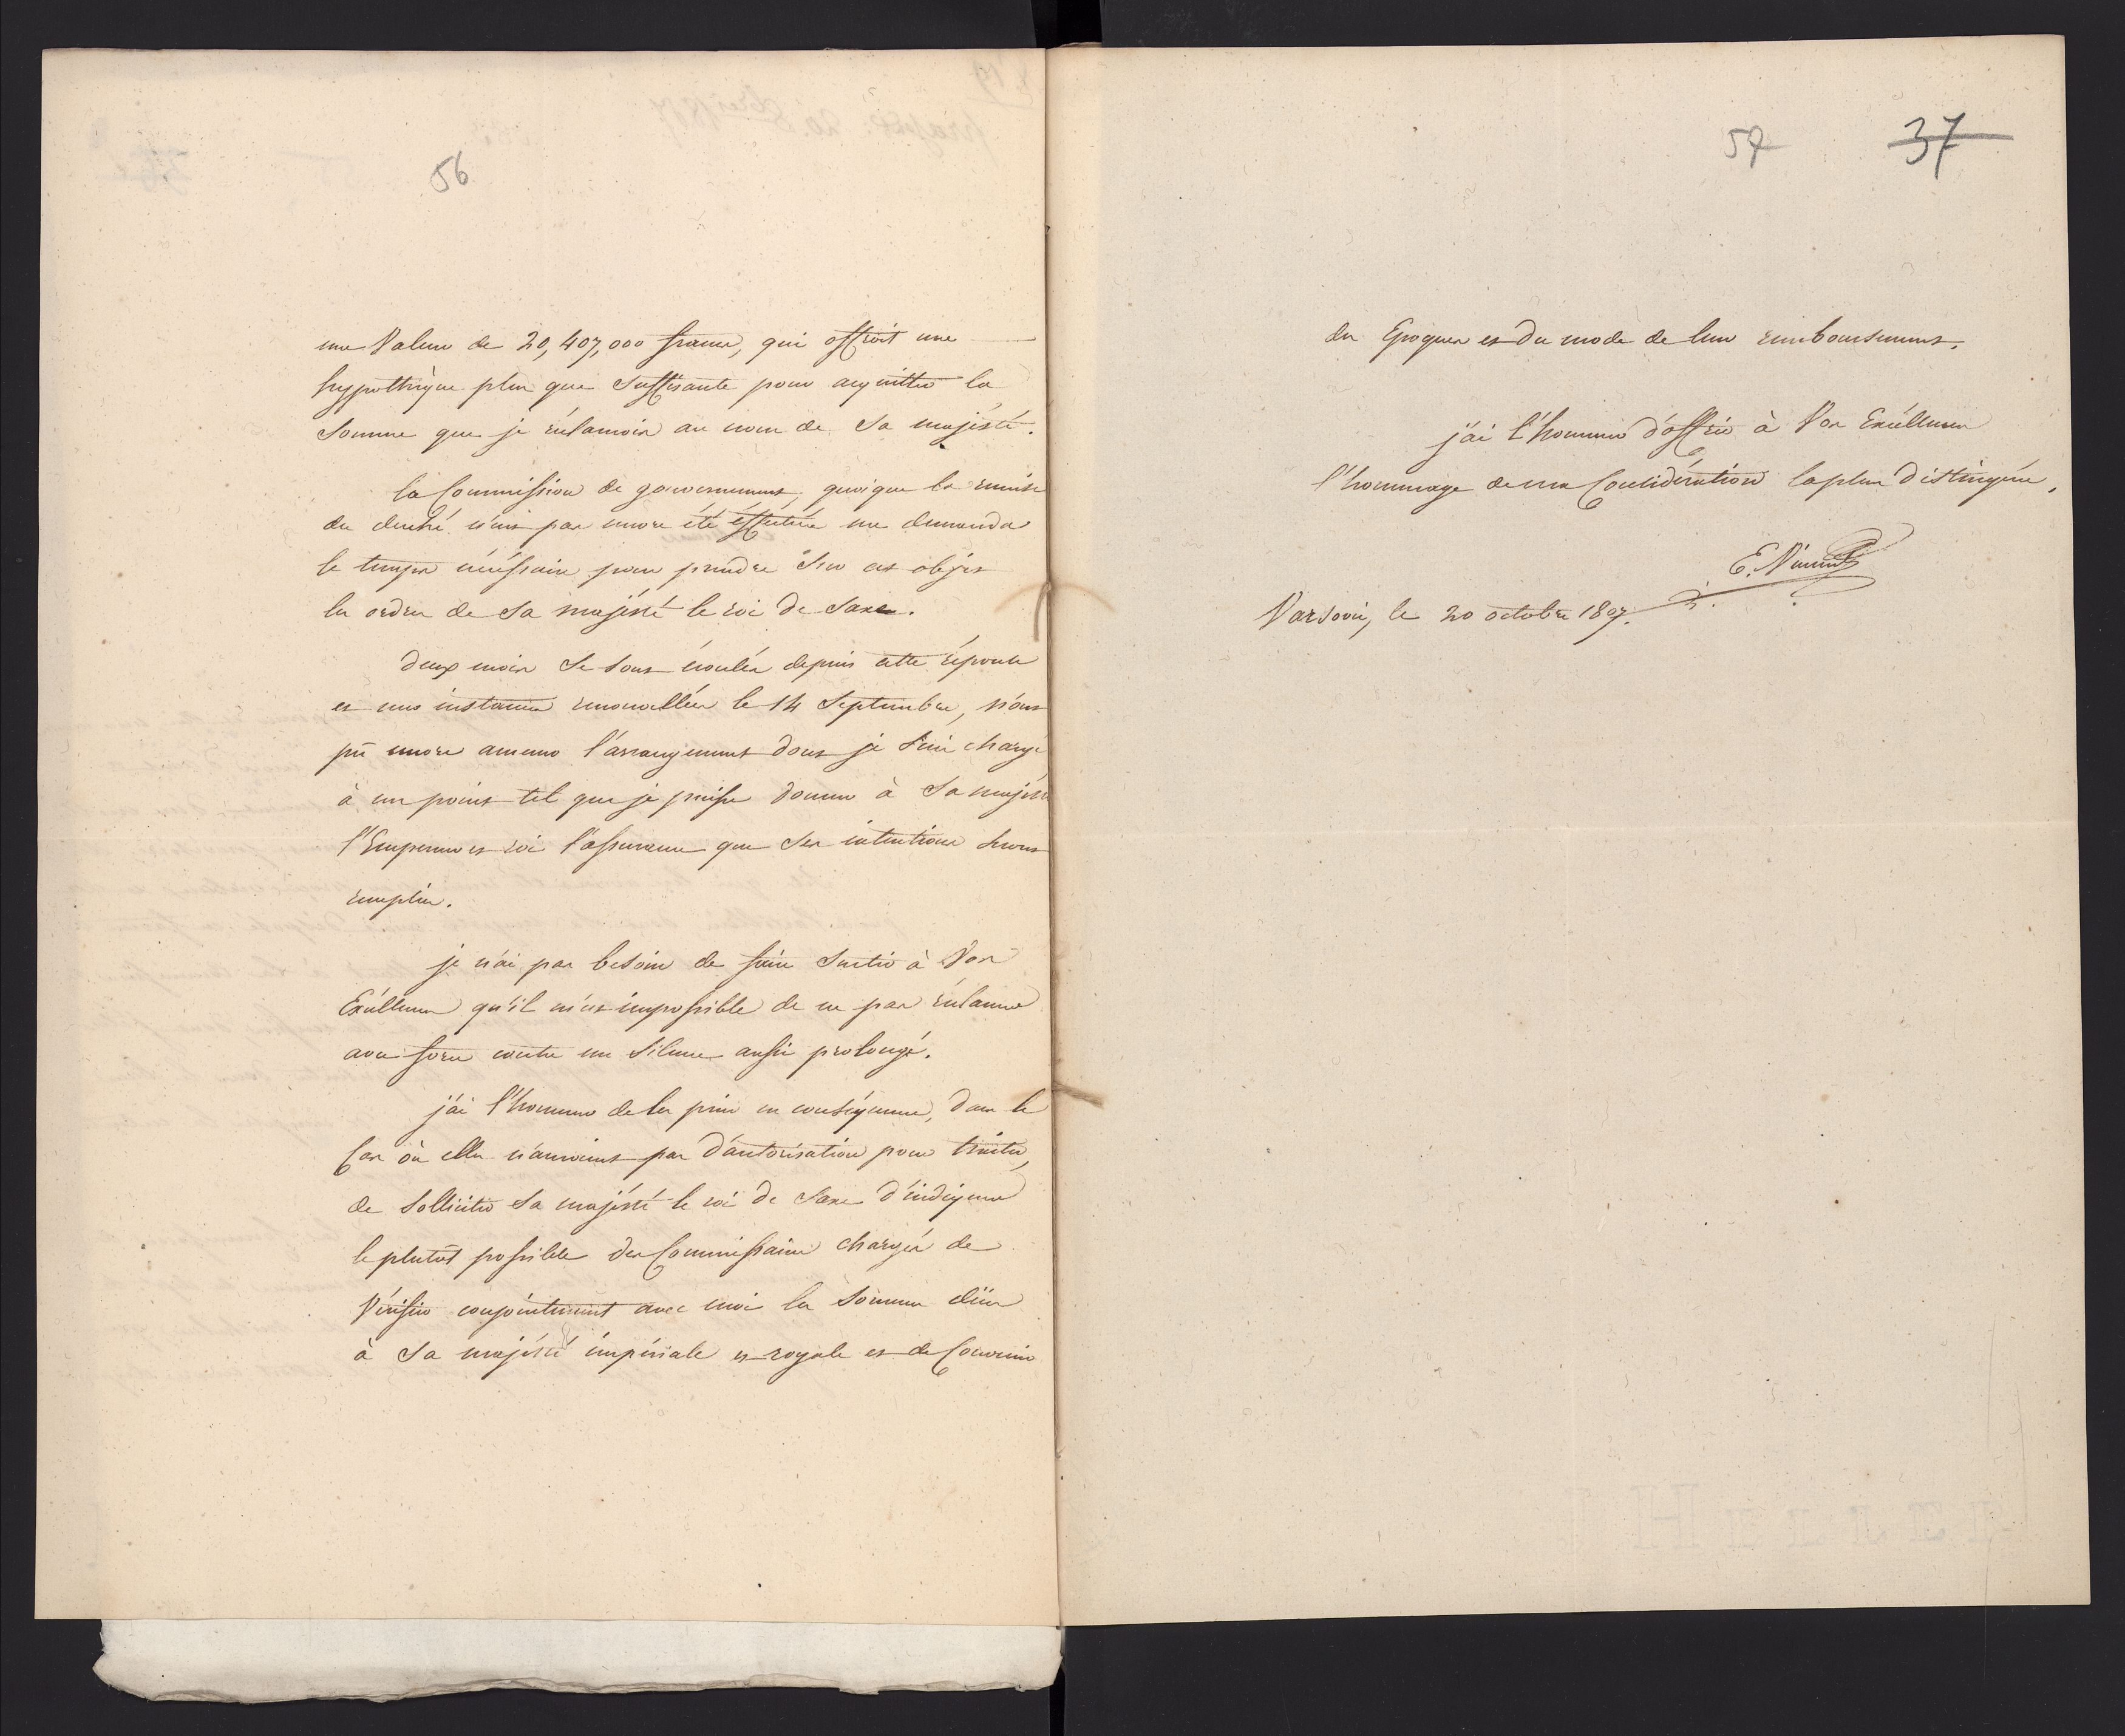 56
une Valeur de 20,407,000 francs, qui offroit une
hypothèque plus que suffisante pour acquitter la
somme que je réclamois au nom de Sa majésté.
la Commission de gouvernement, quoique la remise
du duché n'eut pas encore été éffectuée me demanda
le temps nécéssaire pour prendre sur cet objet
les ordres de Sa majésté le roi de Saxe.
deux mois se sont écoulés depuis cette réponse
et mes instances renouvellées le 14 Septembre, n'ont
pû encore amener l'arrangement dont je suis chargé
à un point tel que je puisse donner à Sa majésté
l'Empereur et roi l'assurance que ses intentions seront
remplies.
je n'ai pas besoin de faire sentir à Vos
Excéllences qu'il m'est impossible de ne pas réclamer
avec force contre un silence aussi prolongé.
j'ai l'honneur de les prier en conséquence, dans le
Cas où elles n'auroient pas d'autorisation pour traiter,
de solliciter Sa majésté le roi de Saxe d'indiquer
le plutôt possible des Commissaires chargés de
Vérifier conjointement avec moi les sommes dües
à Sa majésté impériale et royale et de Convenir
57 37
des Epoques et du mode de leur remboursement.
j'ai l'honneur d'offrir à Vos Excéllences
l'hommage de ma Considération la plus distinguée,
E. Vincent
Varsovie, le 20 octobre 1807.